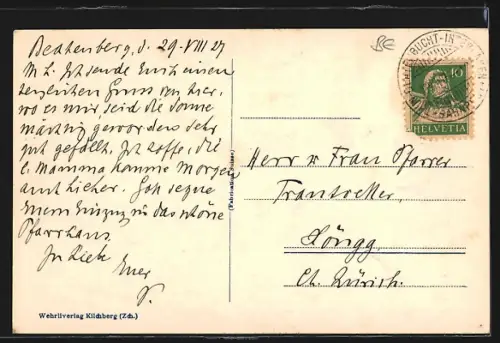 Beatenberg, d. 29. VIII 27
M. L. Ich sende Euch einen
herzlichen Gruss von hier,
wo es mir, seid die Sonne
mächtig geworden sehr
gut gefällt. Ich hoffe, die
l. Mamma komme Morgen
auch hieher. Gott segne
Euern Einzug in das schöne
Pfarrhaus.
In Liebe
Euer
Wehrliverlag Kilchberg (Zch.)
BE
BUCHT-INTERLAKEN
10
HELVETIA
Herr u Frau Pfarrer
Höngg
Ct. Zürich.